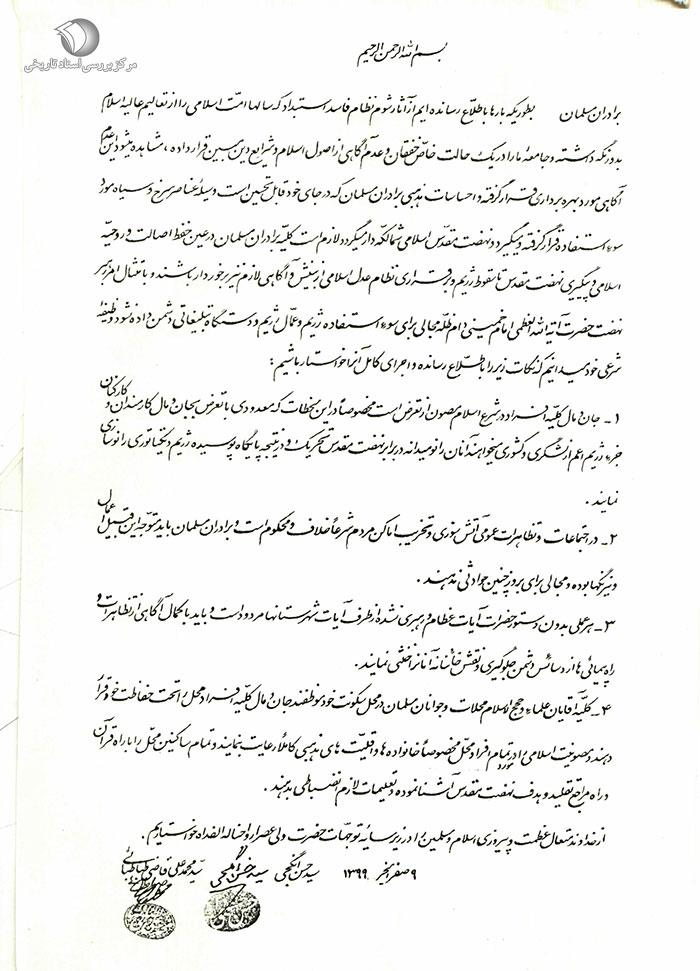 مرکز بررسی اسناد تاریخی
بسم الله الرحمن الرحیم
برادران مسلمان بطوریکه بارها باطلاع رسانده ایم از آثار شوم نظام فاسد استبداد که سالها امت اسلامی را از تعالیم عالیه اسلام
بدور نگه داشته و جامعهٔ ما را در یک حالت خاص خفقان و عدم آگاهی از اصول اسلام و شرایع دین مبین قرار داده، مشاهده میشود این عدم
آگاهی مورد بهره برداری قرار گرفته و احساسات مذهبی برادران مسلمان که در جای خود قابل تحسین است وسیلهٔ عناصر سرخ و سیاه مورد
سوء استفاده قرار گرفته و میگیرد و نهضت مقدس اسلامی ما لکه دار میگردد لازم است کلیهٔ برادران مسلمان در عین حفظ اصالت و روحیهٔ
اسلامی و پیگیری نهضت مقدس تا سقوط رژیم و برقراری نظام عدل اسلامی از بینش و آگاهی لازم نیز برخوردار باشند و با امتثال امر رهبر
نهضت حضرت آیة الله العظمی امام خمینی دام ظله مجالی برای سوء استفاده رژیم و عمال رژیم و دستگاه تبلیغاتی دشمن داده نشود وظیفهٔ
شرعی خود میدانیم که نکات زیر را باطلاع رسانده و اجرای کامل آنرا خواستار باشیم:
۱- جان و مال کلیهٔ افراد در شرع اسلام مصون از تعرض است مخصوصاً در این لحظات که معدودی با تعرض بجان و مال کارمندان و کارکنان
جزء رژیم اعم از لشگری و کشوری میخواهند آنان را نومیدانه در برابر نهضت مقدس تحریک و در نتیجه پایگاه پوسیده رژیم دیکتاتوری را نوسازی
نمایند.
۲- در اجتماعات و تظاهرات عمومی آتش سوزی و تخریب اماکن مردم شرعاً خلاف و محکوم است و برادران مسلمان باید متوجه این قبیل اعمال
و نیرنگها بوده و مجالی برای بروز چنین حوادثی ندهند.
۳- هر عملی بدون دستور حضرات آیات عظام و رهبری نشده از طرف آیات شهرستانها مردود است و باید با کمال آگاهی از تظاهرات و
راه پیمائی ها از دسائس دشمن جلوگیری و نقش خائنانه آنانرا خنثی نمایند.
۴- کلیهٔ آقایان علماء و حجج اسلام محلات و جوانان مسلمان در محل سکونت خود موظفند جان و مال کلیه افراد محل را تحت حفاظت خود قرار
دهند و مصونیت اسلامی را در مورد تمام افراد محل مخصوصاً خانواده ها و اقلیت های مذهبی کاملاً رعایت بنمایند و تمام ساکنین محل را با راه قرآن
و راه مراجع تقلید و هدف نهضت مقدس آشنا نموده و تعلیمات لازم انضباطی بدهند.
از خداوند متعال عظمت و پیروزی اسلام و مسلمین را در زیر سایهٔ توجهات حضرت ولی عصر ارواحنا له الفداه خواستاریم.
۹ صفر الخیر ۱۳۹۹ سید حسن انگجی سید محمد علی قاضی طباطبائی